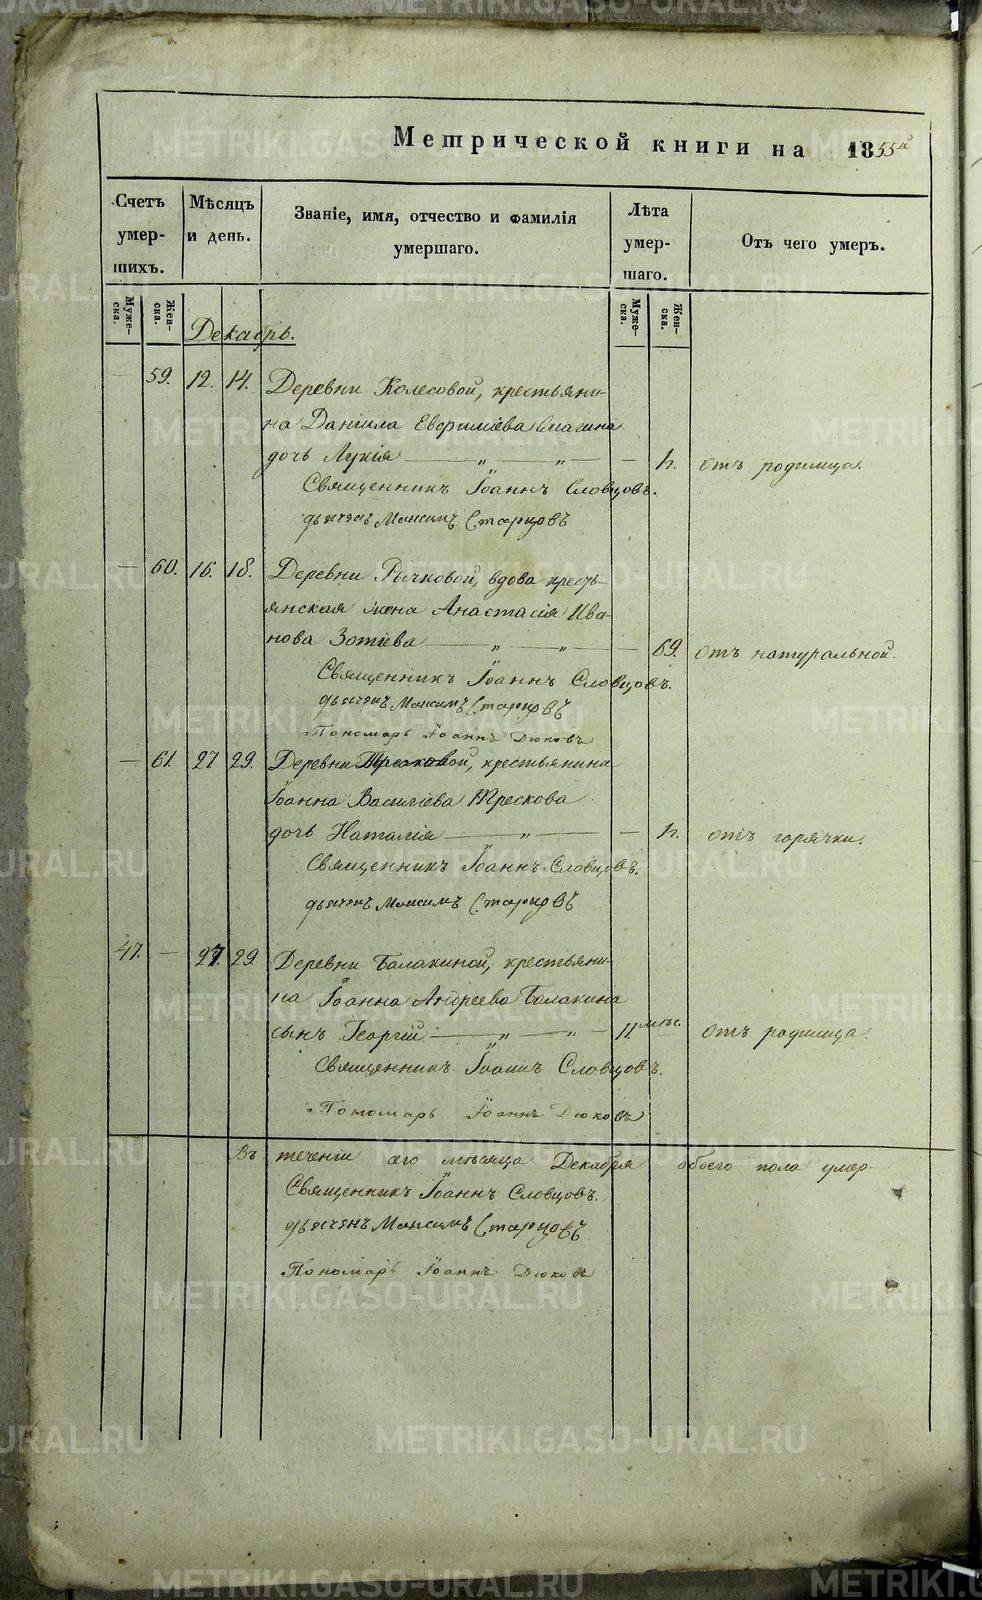 Метрической книги на 1855й
Счетъ умершихъ.
Мѣсяцъ и день.
Званіе, имя, отчество и фамилія умершаго.
Лѣта умершаго.
Отъ чего умеръ.
Мужеска.
Женска.
Мужеска.
Женска.
Декабрь.
— 59. 12. 14. Деревни Колесовой, крестьяни-
на Даніила Евфиміева
дочь Лукія — „ — „ — — отъ родимца.
Священникъ Іоаннъ Словцовъ.
дьячекъ Максимъ Старцовъ
— 60. 16. 18. Деревни Рычковой, вдова кресть-
янская жена Анастасія Ива-
нова Зотѣева — „ — „ — — 69. отъ натуральной.
Священникъ Іоаннъ Словцовъ.
дьячекъ Максимъ Старцовъ
Пономарь Іоаннъ Дюковъ
— 61. 27 29. Деревни Тресковой, крестьянина
Іоанна Василіева Трескова
дочь Наталія — „ — — отъ горячки.
Священникъ Іоаннъ Словцовъ.
дьячекъ Максимъ Старцовъ
47. — 27. 29. Деревни Балакиной, крестьяни-
на Іоанна Андреева Балакина
сынъ Георгій — „ — „ — 11. мѣс. отъ родимца.
Священникъ Іоаннъ Словцовъ.
Пономарь Іоаннъ Дюковъ
Въ теченіи сего мѣсяца Декабря обоего пола умер-
Священникъ Іоаннъ Словцовъ.
дьячекъ Максимъ Старцовъ
Пономарь Іоаннъ Дюковъ
METRIKI.GASO-URAL.RU